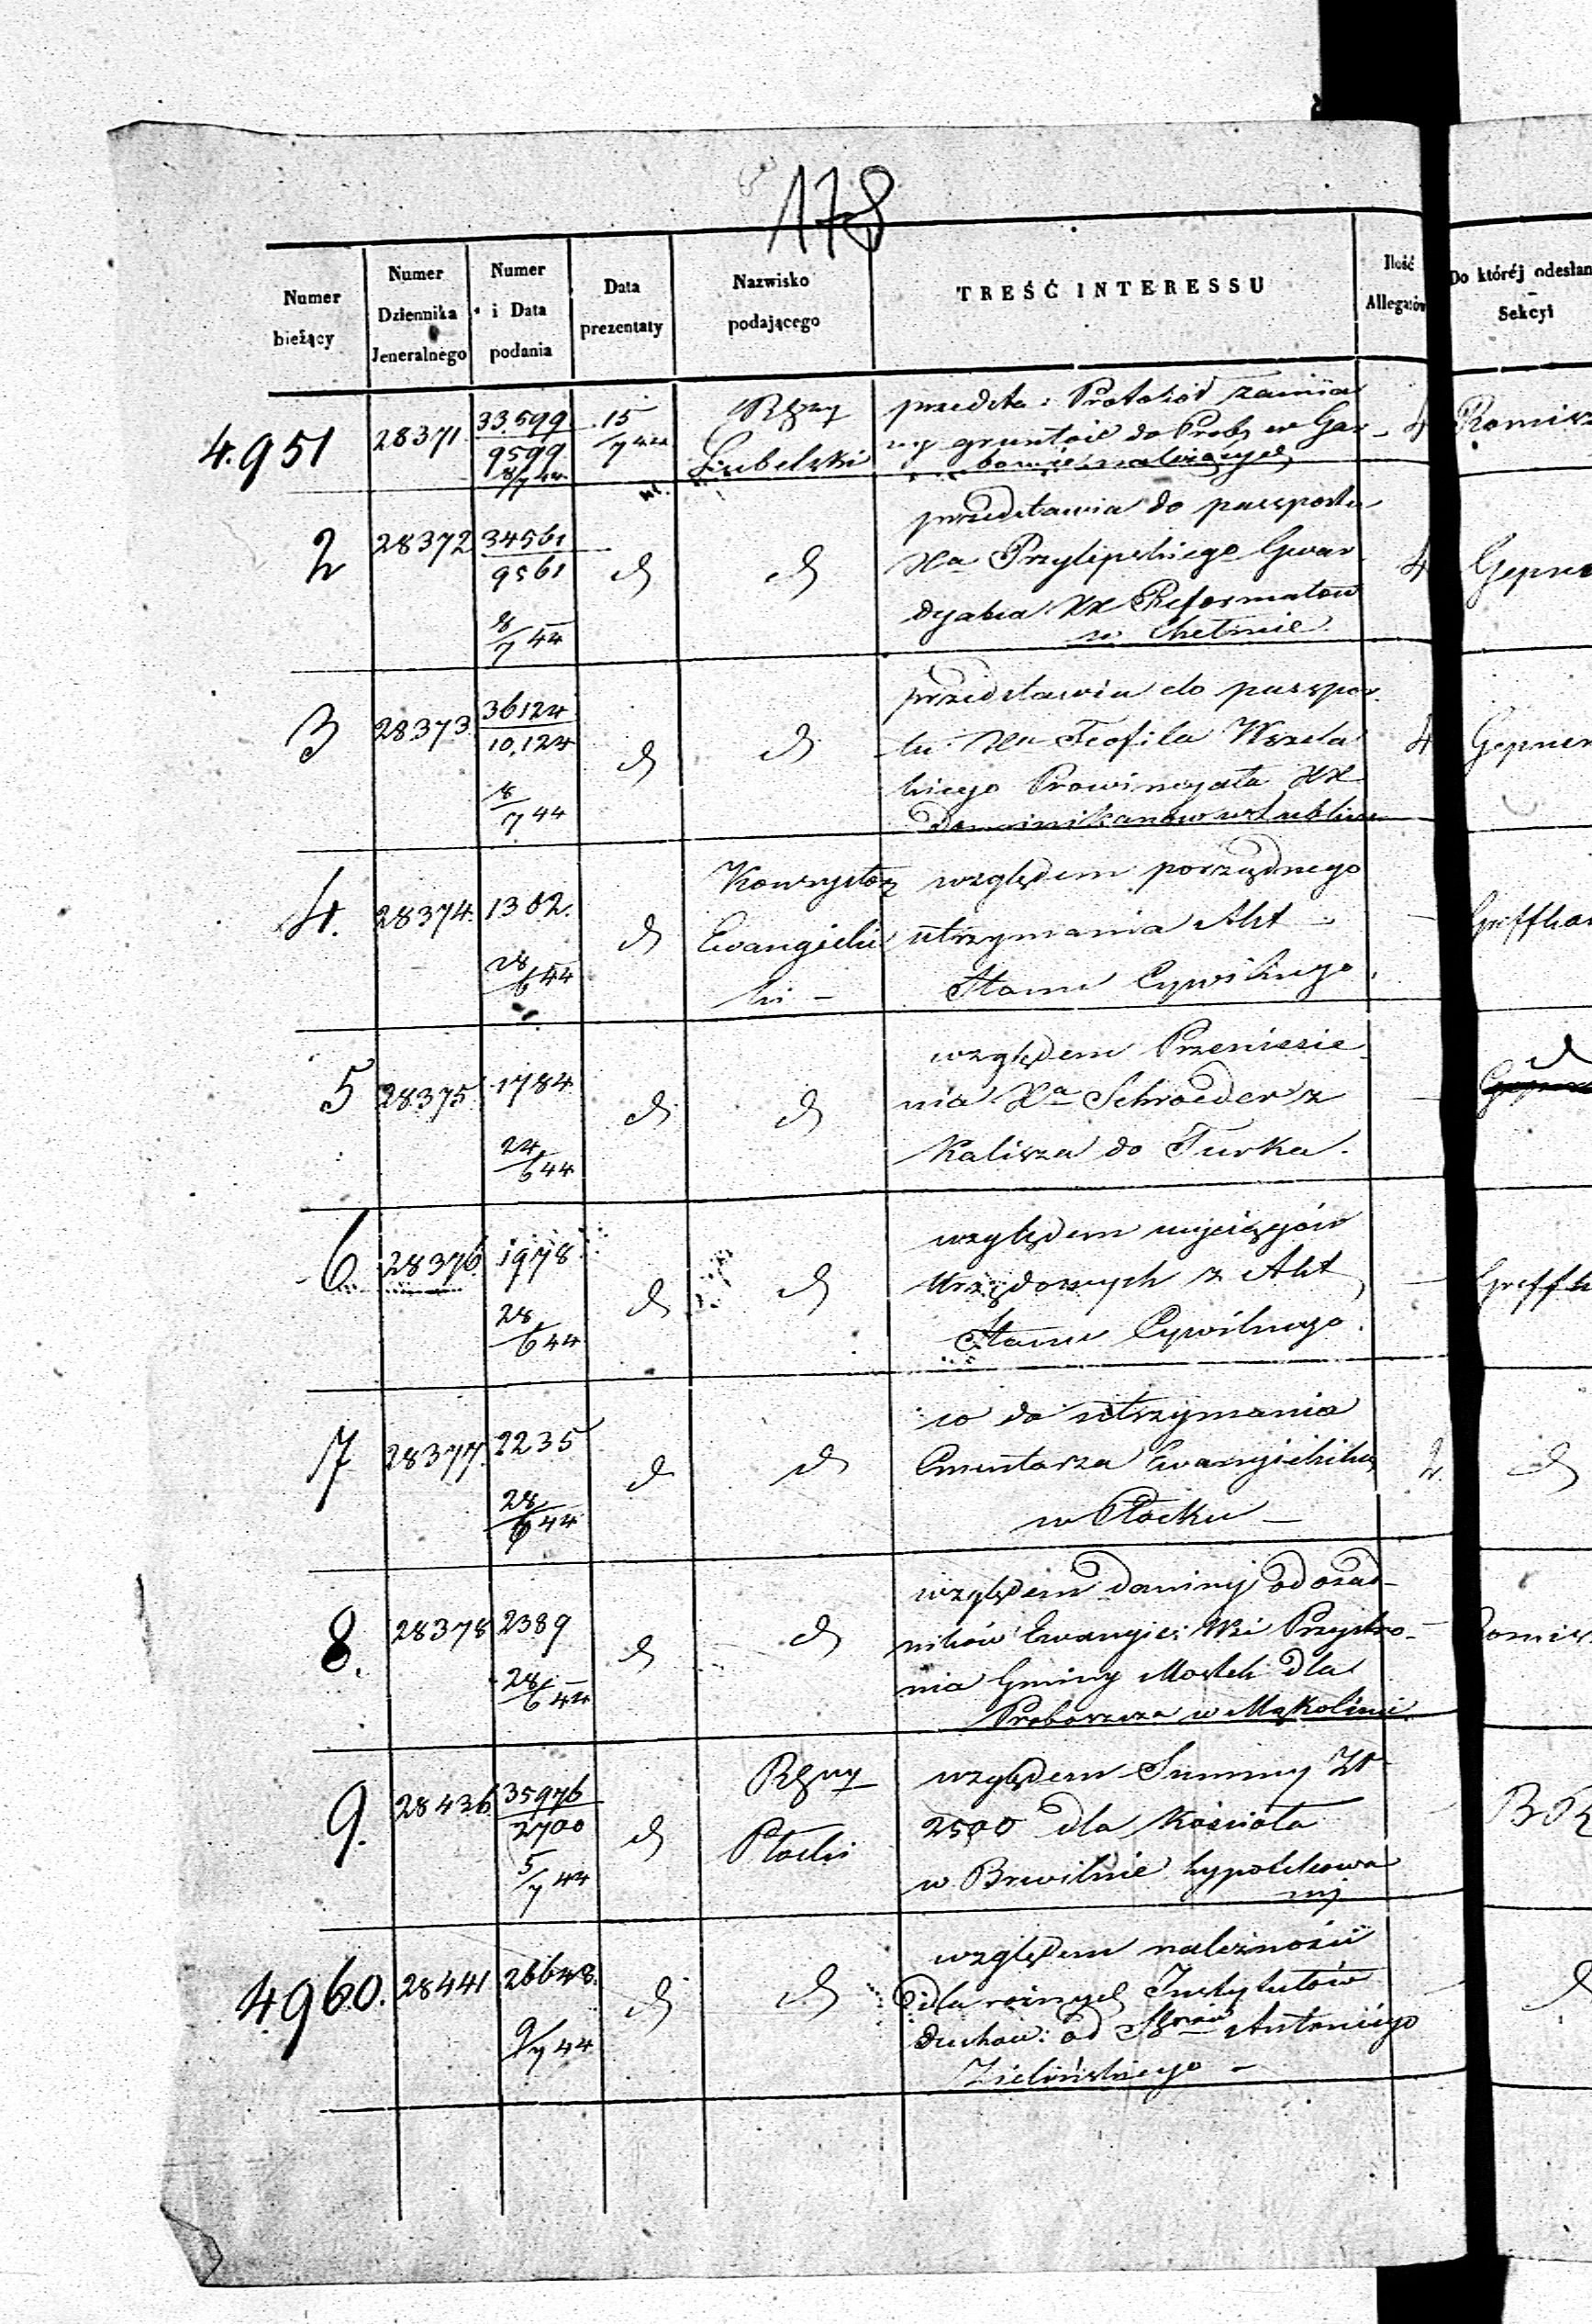 178
Numer bieżący | Numer Dziennika Jeneralnego | Numer i Data podania | Data prezentaty | Nazwisko podającego | TREŚĆ INTERESSU | Ilość Allegatów | Do któréj odesłan Sekcyi
4.951 | 28371 | 33.599 / 9599 8/7 44 | 15/7 44 | Rząd Lubelski | przedsta: Protokół zamia
ny gruntów do Prob. w Gar
bowie należących | 4
2 | 28372 | 34561 / 9561 8/7 44 | d | d | przedstawia do passportu
Xa Przylipskiego Gwar
dyana XX Reformatów
w Chełmie | 4 | Gepne
3 | 28373 | 36124 / 10,124 8/7 44 | d | d | przedstawia do passpor
tu Xa Teofila Wszela
kiego Prowincyała XX
Dominikanów w Lublinie | 4 | Gepner
4. | 28374. | 1302. 28/6 44 | d | Konsystorz Ewangielic ki – | względem porządnego
utrzymania Akt
Stanu Cywilnego. | –
5 | 28375 | 1784 24/6 44 | d | d | względem Przeniesie
nia Xa Schroeder z
Kalisza do Turka. | – | d
6 | 28376 | 1978 28/6 44 | d | d | względem wyciągów
Urzędowych z Akt
Stanu Cywilnego. | –
7 | 28377. | 2235 28/6 44 | d | d | co do utrzymania
Cmentarza Ewangielickie
w Płocku – | 2 | d
8. | 28378 | 2389 28/6 44 | d | d | względem daniny od osad-
ników Ewangie: Wsi Przystro-
nia Gminy Mostek dla
Proboszcza w Mąkolinie | –
9. | 28436. | 35976 / 2700 5/7 44 | d | Rząd Płocki | względem Summy Zł
2500 dla Kościoła
w Brwilnie hypotekowa
nej
4960. | 28441 | 26648. 9/7 44 | d | d | względem należności
dla różnych Instytutów
duchow: od Antoniego
Zielińskiego – | d